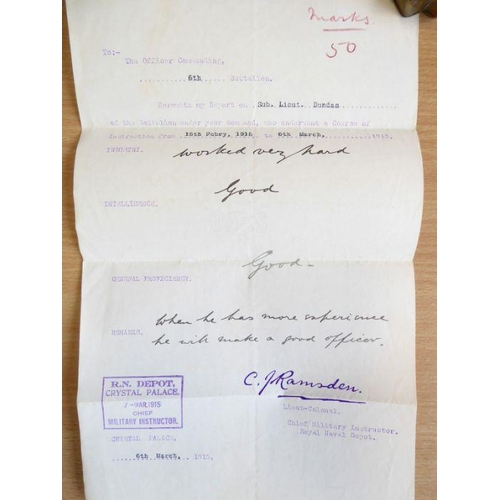 Marks
50
To:-
The Officer Commanding,
6th Battalion.
my Report on Sub. Lieut. Dundas
of the Battalion under your command, who underwent a Course of
Instruction from 15th Febry, 1915, to 6th March, 1915.
INDUSTRY. worked very hard
Good
INTELLIGENCE.
Good -
GENERAL PROFICIENCY.
When he has more experience
REMARKS. he will make a good officer.
C. J Ramsden.
R.N. DEPOT,
CRYSTAL PALACE.
MAR. 1915
CHIEF
MILITARY INSTRUCTOR.
Lieut-Colonel.
Chief Military Instructor.
Royal Naval Depot.
CRYSTAL PALACE.
6th March, 1915.